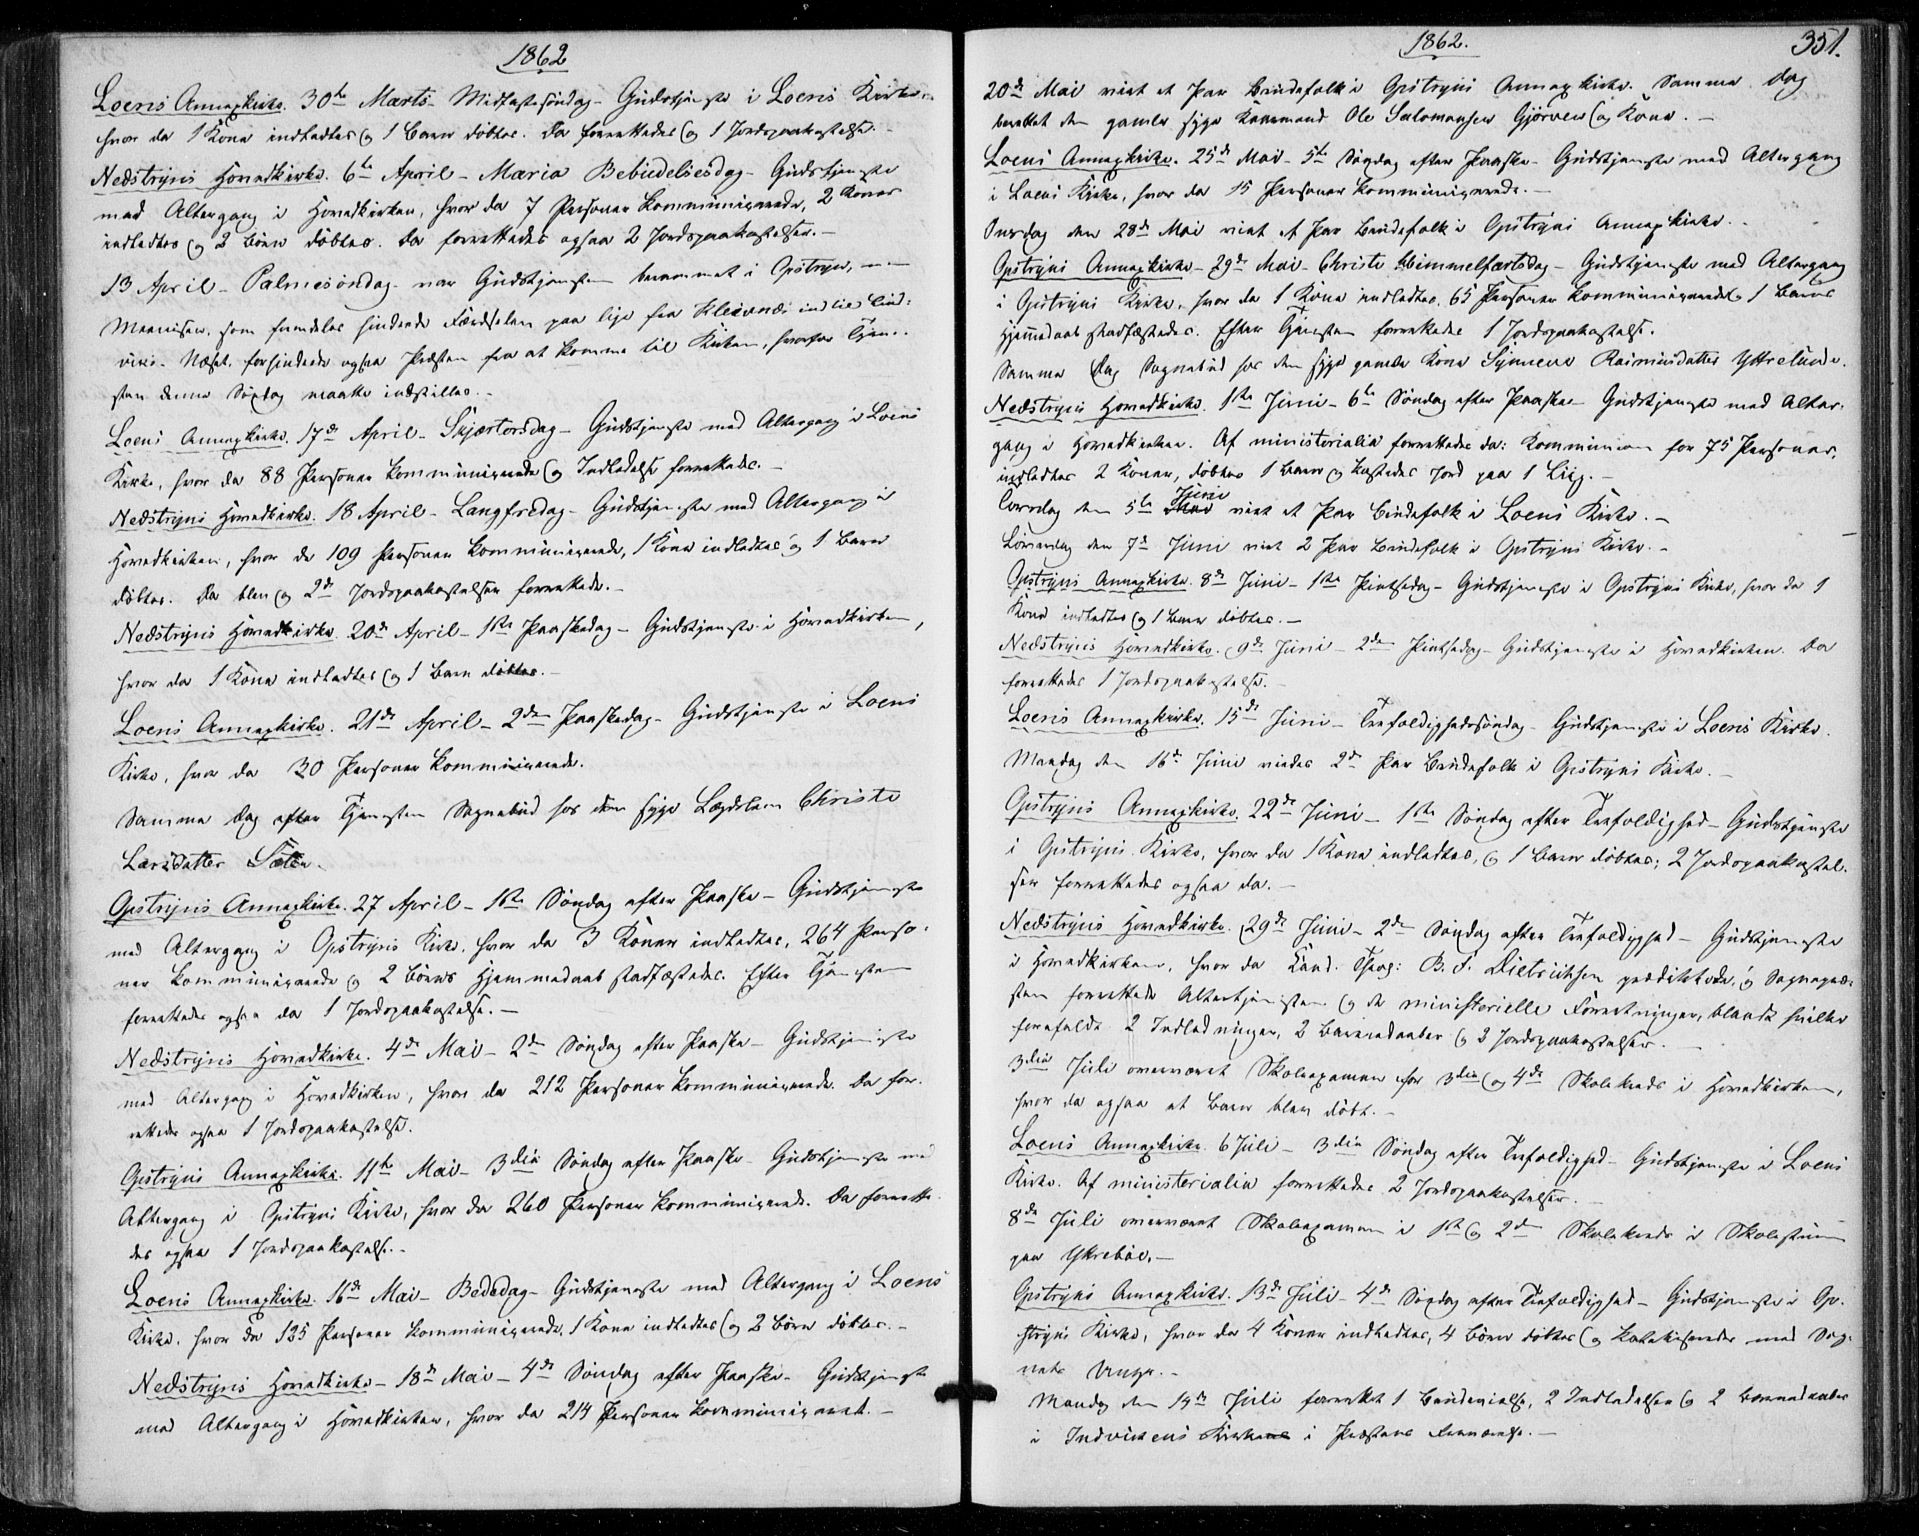 1862
Loens Annexkirke. 30te Marts - Midfastesöndag - Gudstjeneste i Loens Kirke,
hvor da 1 Kone indledtes og 1 Barn döbtes. Da forrettedes og 1 Jordspaakastelse. -
Nedstryns Hovedkirke. 6te April - Maria Bebudelsesdag - Gudstjeneste
med Altergang i Hovedkirken, hvor da 7 Personer kommunicerede, 2 Koner
indledtes og 2 Börn döbtes. Da forrettedes ogsaa 2 Jordspaakastelser. -
13 April - Palmesöndag - var Gudstjenesten berammet i Opstryn, -
som fremdeles hindrede Færdselen paa lige fra Kleivnæs ind
Næset, forhindrede ogsaa Præsten fra at komme til Kirken, hvorfor Tjene-
sten denne Söndag maatte indstilles. -
Loens Annexkirke. 17de April - Skjærtorsdag - Gudstjeneste med Altergang i Loens
Kirke, hvor da 88 Personer kommunicerede og Indledelse forrettedes. -
Nedstryns Hovedkirke. 18 April - Langfredag - Gudstjeneste med Altergang i
Hovedkirken, hvor da 109 Personer kommunicerede, 1 Kone indledtes og 1 Barn
döbtes. Da blev og 2de Jordspaakastelser forrettede. -
Nedstryns Hovedkirke. 20de April - 1ste Paaskedag - Gudstjeneste i Hovedkirken,
hvor da 1 Kone indledtes og 1 Barn döbtes. -
Loens Annexkirke. 21de April - 2den Paaskedag - Gudstjeneste i Loens
Kirke, hvor da 30 Personer kommunicerede.
Samme Dag efter Tjenesten Sognebud hos den syge Lægdslem Christi
Larsdatter Sæten.
Opstryns Annexkirke. 27 April - 1ste Söndag efter Paaske - Gudstjeneste
med Altergang i Opstryns Kirke, hvor da 3 Koner indledtes, 264 Perso-
ner kommunicerede og 2 Börns Hjemmedaab stadfæstedes. Efter Tjenesten
forrettedes ogsaa da 1 Jordspaakastelse. -
Nedstryns Hovedkirke. 4de Mai - 2den Söndag efter Paaske - Gudstjeneste
med Altergang i Hovedkirken, hvor da 212 Personer kommunicerede. Da for-
rettedes ogsaa 1 Jordspaakastelse.
Opstryns Annexkirke. 11te Mai - 3die Söndag efter Paaske - Gudstjeneste med
Altergang i Opstryns Kirke, hvor da 260 Personer kommunicerede. Da forrette-
des ogsaa 1 Jordspaakastelse. -
Loens Annexkirke. 16de Mai - Bededag - Gudstjeneste med Altergang i Loens
Kirke, hvor da 135 Personer kommunicerede, 1 Kone indledtes og 2 Börn döbtes. -
Nedstryns Hovedkirke - 18de Mai - 4de Söndag efter Paaske - Gudstjeneste
med Altergang i Hovedkirken, hvor da 214 Personer kommunicerede. -
1862.
351.
20de Mai viet et Par Brudefolk i Opstryns Annexkirke. Samme Dag
berettet den gamle syge Kaarmand Ole Salomonsen Gjörven og Kone. -
Loens Annexkirke. 25de Mai - 5te Söndag efter Paaske - Gudstjeneste med Altergang
i Loens Kirke, hvor da 15 Personer kommunicerede. -
Onsdag den 28de Mai viet et Par Brudefolk i Opstryns Annexkirke. -
Opstryns Annexkirke - 29de Mai - Christi Himmelfartsdag - Gudstjeneste med Altergang
i Opstryns Kirke, hvor da 1 Kone indledtes, 65 Personer kommunicerede og 1 Barns
Hjemmedaab stadfæstedes. Efter Tjenesten forrettedes 1 Jordspaakastelse.
Samme Dag Sognebud hos den syge gamle Kone Synneve Rasmusdatter Yttrelunde.
Nedstryns Hovedkirke. 1ste Juni - 6te Söndag efter Paaske - Gudstjeneste med Alter-
gang i Hovedkirken. Af ministerialia forrettedes da: Kommunion for 75 Personer,
indledtes 2 Koner, döbtes 1 Barn og kastedes Jord paa 1 Liig. -
Torsdag den 5te Juni viet et Par Brudefolk i Loens Kirke. -
Löverdag den 7de Juni viet 2 Par Brudefolk i Opstryns Kirke. -
Opstryns Annexkirke. 8de Juni - 1ste Pintsedag - Gudstjeneste i Opstryns Kirke, hvor da 1
Kone indledtes og 1 Barn döbtes. -
Nedstryns Hovedkirke. 9de Juni - 2den Pintsedag - Gudstjeneste i Hovedkirken. Da
forrettedes 1 Jordspaakastelse. -
Loens Annexkirke. 15de Juni - Trefoldighedssöndag - Gudstjeneste i Loens Kirke.
Mandag den 16de Juni viedes 2de Par Brudefolk i Opstryns Kirke. -
Opstryns Annexkirke. 22de Juni - 1ste Söndag efter Trefoldighed - Gudstjeneste
i Opstryns Kirke, hvor da 1 Kone indledtes, og 1 Barn döbtes; 2 Jordspaakastel-
ser forrettedes ogsaa da. -
Nedstryns Hovedkirke. 29de Juni - 2den Söndag efter Trefoldighed - Gudstjeneste
i Hovedkirken, hvor da Cand. Theog: B. S. Dietrichsen prædikede, og Sognepræ-
sten forrettede Altertjenesten og de ministerielle Forretninger, blandt hvilke
forefaldt 2 Indledninger, 2 Barnedaaber og 3 Jordspaakastelser. -
3die Juli overværet Skoleexamen for 3die og 4de Skolekreds i Hovedkirken,
hvor da ogsaa et Barn blev döbt. -
Loens Annexkirke. 6 Juli - 3die Söndag efter Trefoldighed - Gudstjeneste i Loens
Kirke. Af ministerialia forrettedes 2 Jordspaakastelser. -
8de Juli overværet Skoleexamen i 1ste og 2den Skolekreds i Skolestuen
paa Ytreböe. -
Opstryns Annexkirke. 13de Juli - 4de Söndag efter Trefoldighed - Gudstjeneste i Op-
stryns Kirke, hvor da 4 Koner indledtes, 4 Börn döbtes og katekiseredes med Sog-
nets Unge. -
Mandag den 14de Juli forrettet 1 Brudevielse, 2 Indledelser og 2 Barnedaaber
i Indvikens Kirke i Præstens Fraværelse. -